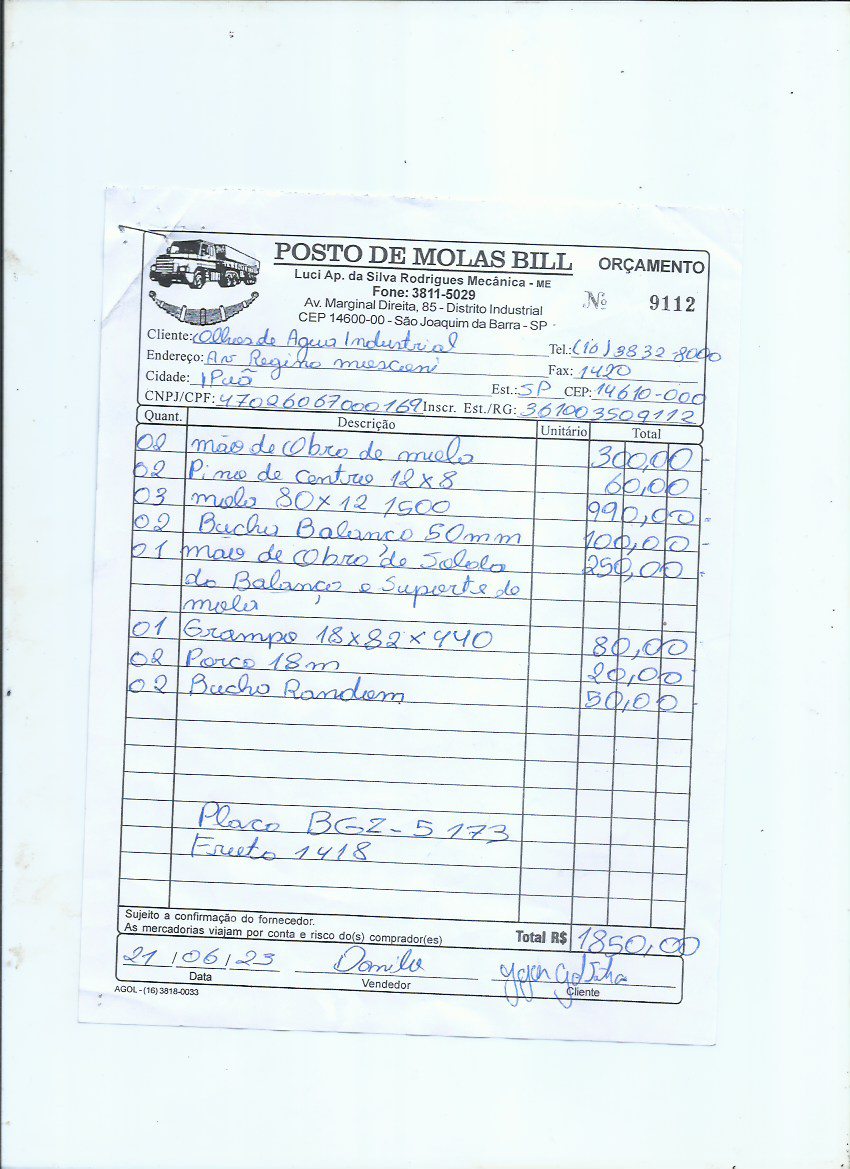 POSTO DE MOLAS BILL
ORÇAMENTO
Luci Ap. da Silva Rodrigues Mecânica - ME
Fone: 3811-5029
Nº 9112
Av. Marginal Direita, 85 - Distrito Industrial
CEP 14600-00 - São Joaquim da Barra - SP
Cliente: Olhos de Agua Industrial Tel.: (16) 3832-8000
Endereço: Av Regino moscani Fax: 1420
Cidade: IPuã Est.: SP CEP: 14610-000
CNPJ/CPF: 47026067000169 Inscr. Est./RG: 361003509112
Quant. Descrição Unitário Total
02 mão de Obra de mola 300,00
02 Pino de centro 12x8 60,00
03 mola 80x12 1500 990,00
02 Bucha Balanço 50mm 100,00
01 mão de Obra de Solda 250,00
do Balanço e Suporte do
mola
01 Grampo 18x82x440 80,00
02 Porca 18m 20,00
02 Bucha Random 50,00
Placa BGZ-5173
Frota 1418
Sujeito a confirmação do fornecedor.
As mercadorias viajam por conta e risco do(s) comprador(es)
Total R$ 1850,00
21/06/23 Danilo
Data Vendedor Cliente
AGOL - (16) 3818-0033